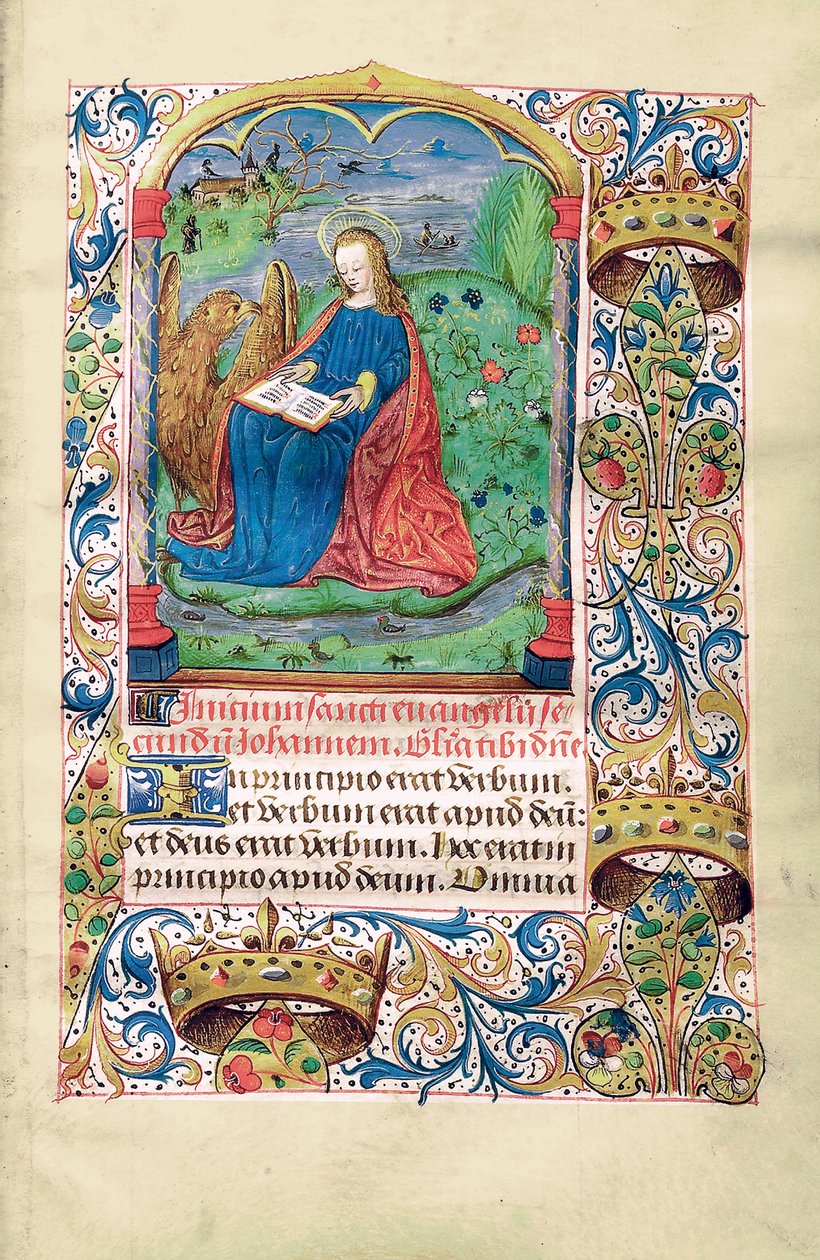 Inicium sancti euangelij se
cundū Iohannem. Glīa tibi dn̄e
In principio erat Verbum.
et Verbum erat apud deū:
et deus erat Verbum. Hoc erat in
principio apud deum. Omnia